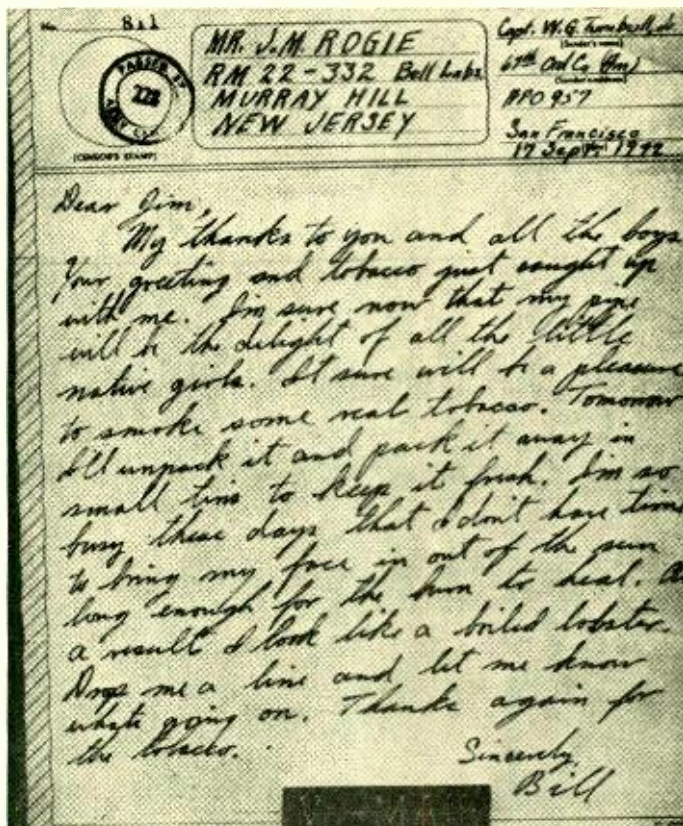 No. 811
PASSED BY
228
ARMY
(CENSOR'S STAMP)
MR. J.M. ROGIE
RM 22-332 Bell Labs
MURRAY HILL
NEW JERSEY
Capt. W.G. Turnbull, Jr.
(Sender's name)
67th Ord Co. (Am)
APO 957
San Francisco
17 Sept. 1942
Dear Jim,
My thanks to you and all the boys
Your greeting and tobacco just caught up
with me. I'm sure now that my pipe
will be the delight of all the little
native girls. It sure will be a pleasure
to smoke some real tobacco. Tomorrow
I'll unpack it and pack it away in
small tins to keep it fresh. I'm so
busy these days that I don't have time
to bring my face in out of the sun
long enough for the burn to heal. As
a result I look like a boiled lobster.
Drop me a line and let me know
whats going on. Thanks again for
the tobacco.
Sincerely,
Bill